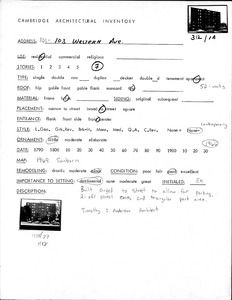 CAMBRIDGE ARCHITECTURAL INVENTORY
312/1A
ADDRESS: 101- 103 Western Ave.
USE: residential commercial religious
STORIES: 1 2 3 4 5 7
TYPE: single double row duplex decker double d tenement
52 units
ROOF: hip gable front gable flank mansard
MATERIAL: frame SIDING: original subsequent
PLACEMENT: narrow to street broad to street square
ENTRANCE: flank front side front center
contemporary
STYLE: L.Geo. Gk.Rev. Brkt. Mans. Med. Q.A. C.Rev. None
ORNAMENT: some moderate elaborate
1968
DATE: 1790 1800 10 20 30 40 50 60 70 80 90 1900 10 20 30
MAP: 1969 Sanborn
REMODELING: drastic moderate CONDITION: poor fair good excellent
IMPORTANCE TO SETTING: none moderate great INITIALED: En
DESCRIPTION: Built angled to street to allow for parking,
2: off street ends and triangular park area.
Timothy S. Anderson Architect